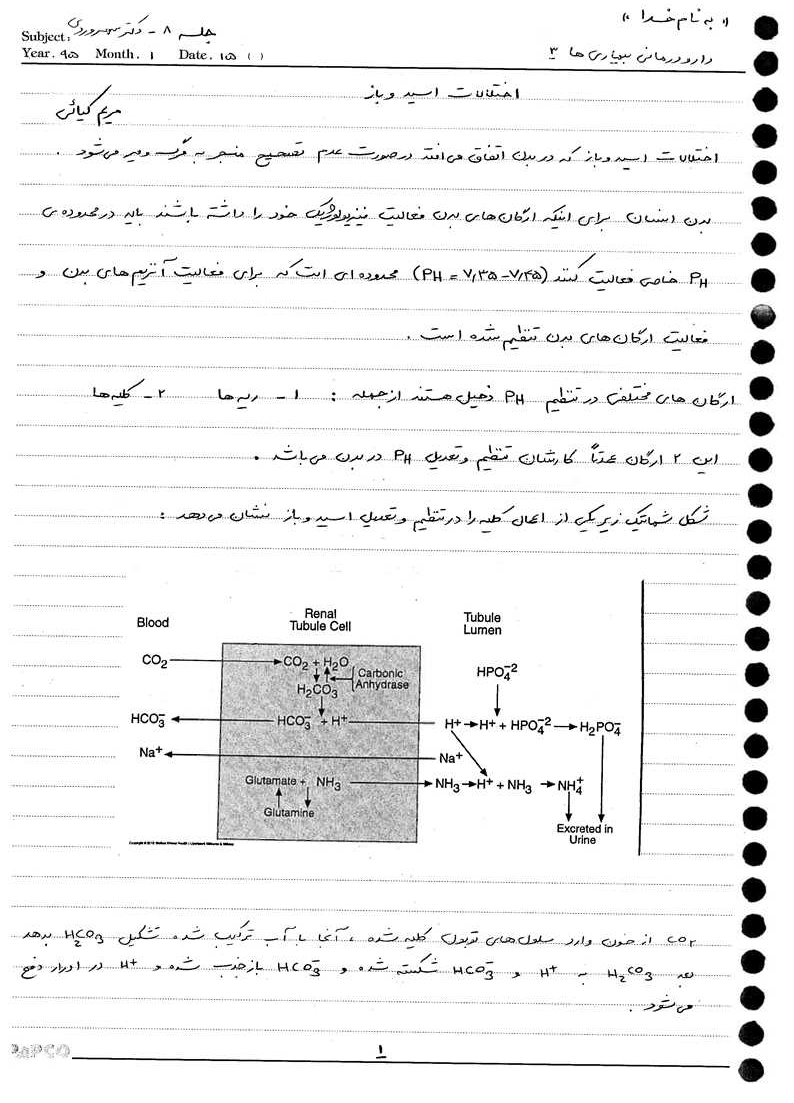 « به نام خدا »
جلسه ۸ - دکتر سهروردی
Subject:
Year. ۹۵ Month. ۱ Date. ۱۵ ( )
دارودرمانی بیماری ها ۳
اختلالات اسید و باز
مریم کیائی
اختلالات اسید و باز که در بدن اتفاق می افتد در صورت عدم تصحیح منجر به مرگ و میر می شود .
بدن انسان برای اینکه ارگان های بدن فعالیت فیزیولوژیک خود را داشته باشند باید در محدوده ی
PH خاصی فعالیت کنند (PH = ۷٫۳۵ - ۷٫۴۵) محدوده ای است که برای فعالیت آنزیم های بدن و
فعالیت ارگان های بدن تنظیم شده است .
ارگان های مختلفی در تنظیم PH دخیل هستند از جمله : ۱ - ریه ها ۲ - کلیه ها
این ۲ ارگان عمدتاً کارشان تنظیم و تعدیل PH در بدن می باشد .
شکل شماتیک زیر یکی از اعمال کلیه را در تنظیم و تعدیل اسید و باز نشان می دهد :
Blood
Renal
Tubule Cell
Tubule
Lumen
CO2
CO2 + H2O
Carbonic
Anhydrase
H2CO3
HPO4-2
HCO3-
HCO3- + H+
H+
H+ + HPO4-2
H2PO4-
Na+
Na+
Glutamate + NH3
NH3
H+ + NH3
NH4+
Glutamine
Excreted in
Urine
CO۲ از خون وارد سلول های توبول کلیه شده ، آنجا با آب ترکیب شده تشکیل H2CO3 بدهد
بعد H2CO3 به H+ و HCO3- شکسته شده و HCO3- بازجذب شده و H+ در ادرار دفع
می شود .
PAPCO
۱